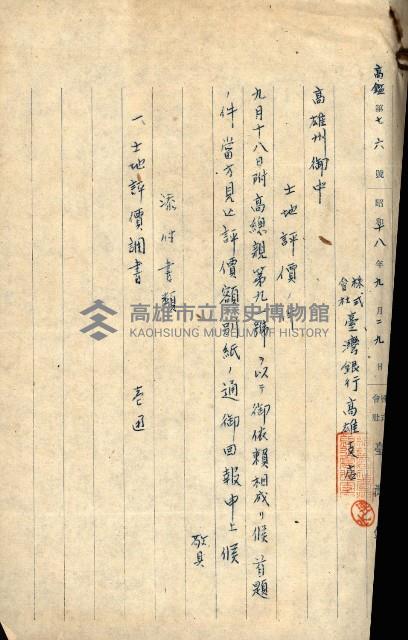 高鑑第七六號 昭和十八年九月二九日
株式會社臺灣銀行高雄支店
高雄州御中
土地評價ノ件
九月十八日附高總親第九號ヲ以テ御依賴相成リ候首題
ノ件當方見込評價額別紙ノ通御回報申上候
敬具
添付書類
一、土地評價調書 壱通
高雄市立歷史博物館
KAOHSIUNG MUSEUM OF HISTORY